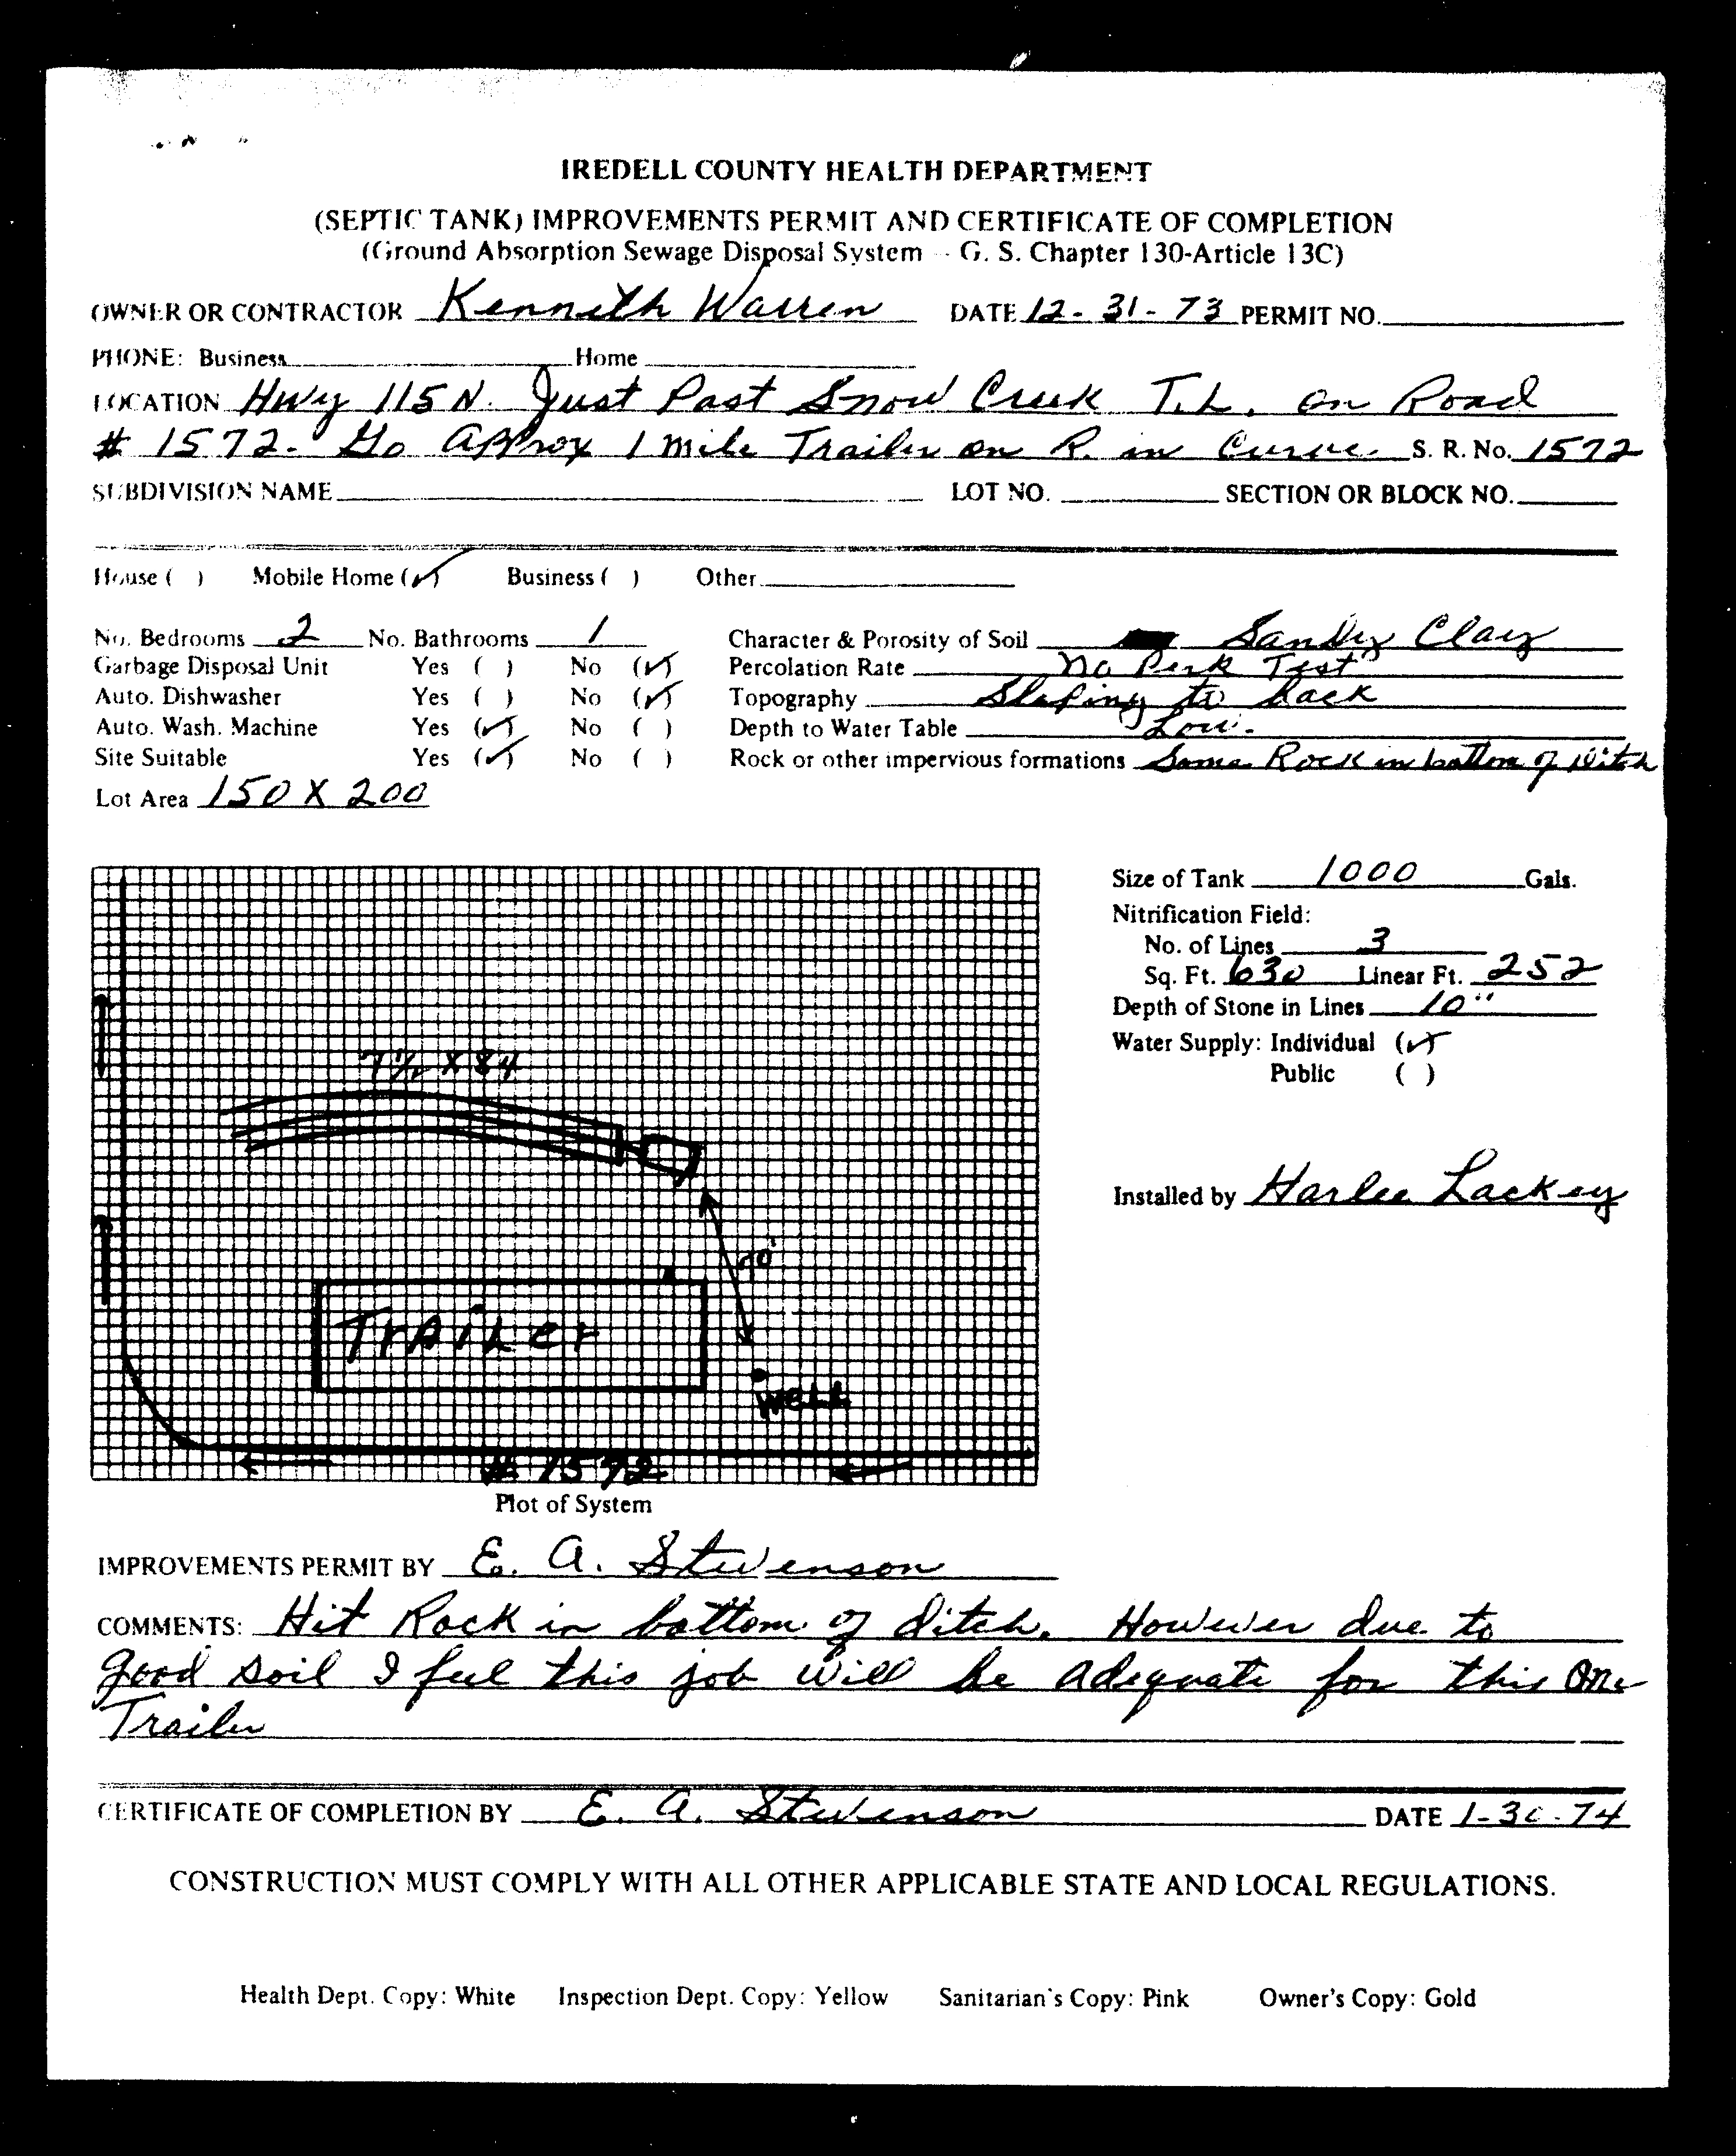 IREDELL COUNTY HEALTH DEPARTMENT
(SEPTIC TANK) IMPROVEMENTS PERMIT AND CERTIFICATE OF COMPLETION
(Ground Absorption Sewage Disposal System - G. S. Chapter 130-Article 13C)
OWNER OR CONTRACTOR Kenneth Warren DATE 12-31-73 PERMIT NO.
PHONE: Business Home
LOCATION Hwy 115 N. Just Past Snow Creek T.L. on Road
# 1572. Go Approx 1 mile Trailer on R. in Curve. S. R. No. 1572
SUBDIVISION NAME LOT NO. SECTION OR BLOCK NO.
House ( ) Mobile Home (✓) Business ( ) Other
No. Bedrooms 2 No. Bathrooms 1 Character & Porosity of Soil Sandy Clay
Garbage Disposal Unit Yes ( ) No (✓) Percolation Rate No Perk Test
Auto. Dishwasher Yes ( ) No (✓) Topography Sloping to back
Auto. Wash. Machine Yes (✓) No ( ) Depth to Water Table Low.
Site Suitable Yes (✓) No ( ) Rock or other impervious formations Some Rock in bottom of Ditch
Lot Area 150 X 200
Size of Tank 1000 Gals.
Nitrification Field:
No. of Lines 3
Sq. Ft. 630 Linear Ft. 252
Depth of Stone in Lines 10"
Water Supply: Individual (✓)
Public ( )
Installed by Harlee Lackey
7 1/2 X 84
70'
TRAiLer
WELL
# 1572
Plot of System
IMPROVEMENTS PERMIT BY E. A. Stevenson
COMMENTS: Hit Rock in bottom of ditch. However due to
good soil I feel this job will be adequate for this One
Trailer
CERTIFICATE OF COMPLETION BY E. A. Stevenson DATE 1-30-74
CONSTRUCTION MUST COMPLY WITH ALL OTHER APPLICABLE STATE AND LOCAL REGULATIONS.
Health Dept. Copy: White Inspection Dept. Copy: Yellow Sanitarian's Copy: Pink Owner's Copy: Gold